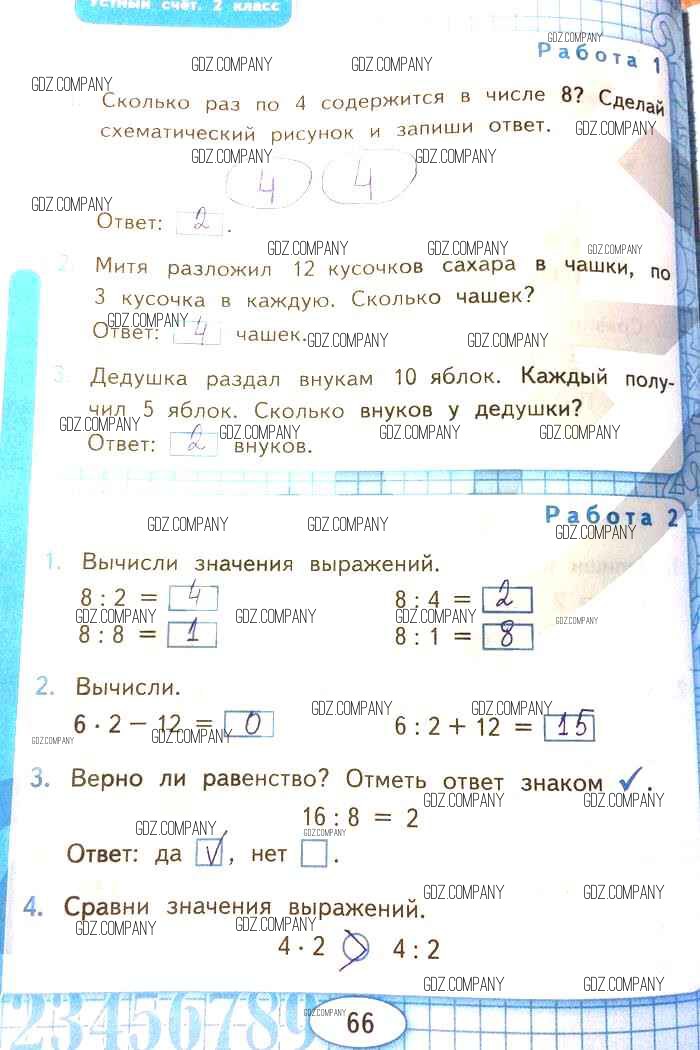 Устный счёт. 2 класс
Работа 1
GDZ.COMPANY GDZ.COMPANY GDZ.COMPANY
GDZ.COMPANY
Сколько раз по 4 содержится в числе 8? Сделай
схематический рисунок и запиши ответ. GDZ.COMPANY
GDZ.COMPANY GDZ.COMPANY
4 4
GDZ.COMPANY
Ответ: 2.
GDZ.COMPANY GDZ.COMPANY GDZ.COMPANY
2. Митя разложил 12 кусочков сахара в чашки, по
3 кусочка в каждую. Сколько чашек?
GDZ.COMPANY
Ответ: 4 чашек. GDZ.COMPANY GDZ.COMPANY
3. Дедушка раздал внукам 10 яблок. Каждый полу-
чил 5 яблок. Сколько внуков у дедушки?
GDZ.COMPANY GDZ.COMPANY GDZ.COMPANY GDZ.COMPANY
Ответ: 2 внуков.
Работа 2
GDZ.COMPANY GDZ.COMPANY GDZ.COMPANY
1. Вычисли значения выражений.
8 : 2 = 4 8 : 4 = 2
GDZ.COMPANY GDZ.COMPANY GDZ.COMPANY GDZ.COMPANY
8 : 8 = 1 8 : 1 = 8
2. Вычисли.
GDZ.COMPANY GDZ.COMPANY
6 · 2 – 12 = 0 6 : 2 + 12 = 15
GDZ.COMPANY GDZ.COMPANY
3. Верно ли равенство? Отметь ответ знаком ✓.
GDZ.COMPANY GDZ.COMPANY
16 : 8 = 2
GDZ.COMPANY GDZ.COMPANY
Ответ: да ✓, нет .
GDZ.COMPANY GDZ.COMPANY
4. Сравни значения выражений.
GDZ.COMPANY GDZ.COMPANY
4 · 2 > 4 : 2
GDZ.COMPANY GDZ.COMPANY
23456789 GDZ.COMPANY
66